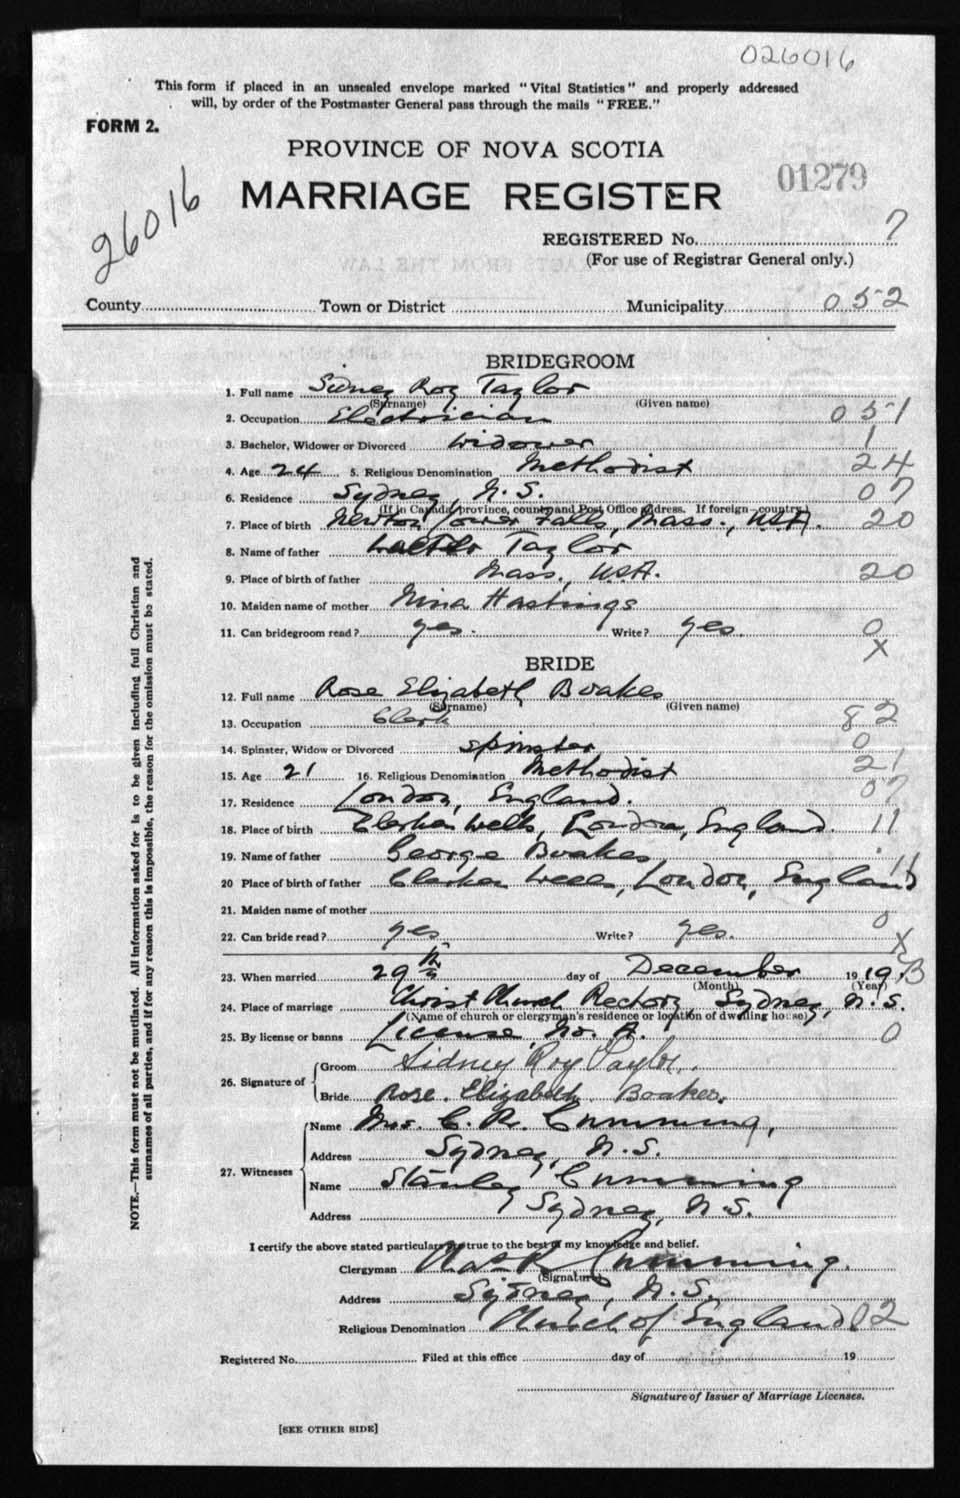 026016
This form if placed in an unsealed envelope marked "Vital Statistics" and properly addressed
will, by order of the Postmaster General pass through the mails "FREE."
FORM 2.
PROVINCE OF NOVA SCOTIA
01279
MARRIAGE REGISTER
26016
REGISTERED No. 7
(For use of Registrar General only.)
County Town or District Municipality 052
BRIDEGROOM
1. Full name Sidney Roy Taylor
(Surname) (Given name)
2. Occupation Electrician 051
3. Bachelor, Widower or Divorced Widower 1
4. Age 24 5. Religious Denomination Methodist 24
6. Residence Sydney, N.S. 07
(If in Canada, province, county and Post Office address. If foreign—country.)
7. Place of birth Newton Lower Falls, Mass., U.S.A. 20
8. Name of father Walter Taylor
9. Place of birth of father Mass., U.S.A. 20
10. Maiden name of mother Nina Hastings
11. Can bridegroom read? yes. Write? yes. 0
X
BRIDE
12. Full name Rose Elizabeth Boakes
(Surname) (Given name)
13. Occupation Clerk 82
14. Spinster, Widow or Divorced Spinster 0
15. Age 21 16. Religious Denomination Methodist 21
17. Residence London, England. 07
18. Place of birth Clerkenwells, London, England. 11
19. Name of father George Boakes
20 Place of birth of father Clerkenwells, London, England 11
21. Maiden name of mother
22. Can bride read? yes Write? yes. 0
X
23. When married 29th day of December 1919. B
(Month) (Year)
24. Place of marriage Christ Church Rectory, Sydney, N.S.
(Name of church or clergyman's residence or location of dwelling house)
25. By license or banns License, No. A. 0
26. Signature of
Groom Sidney Roy Taylor.
Bride Rose Elizabeth Boakes.
27. Witnesses
Name Mrs. C. R. Cumming,
Address Sydney, N.S.
Name Stanley Cumming
Address Sydney, N.S.
I certify the above stated particulars are true to the best of my knowledge and belief.
Clergyman Cumming.
(Signature)
Address Sydney, N.S.
Religious Denomination Church of England 02
Registered No. Filed at this office day of 19
Signature of Issuer of Marriage Licenses.
[SEE OTHER SIDE]
NOTE.—This form must not be mutilated. All information asked for is to be given including full Christian and
surnames of all parties, and if for any reason this is impossible, the reason for the omission must be stated.